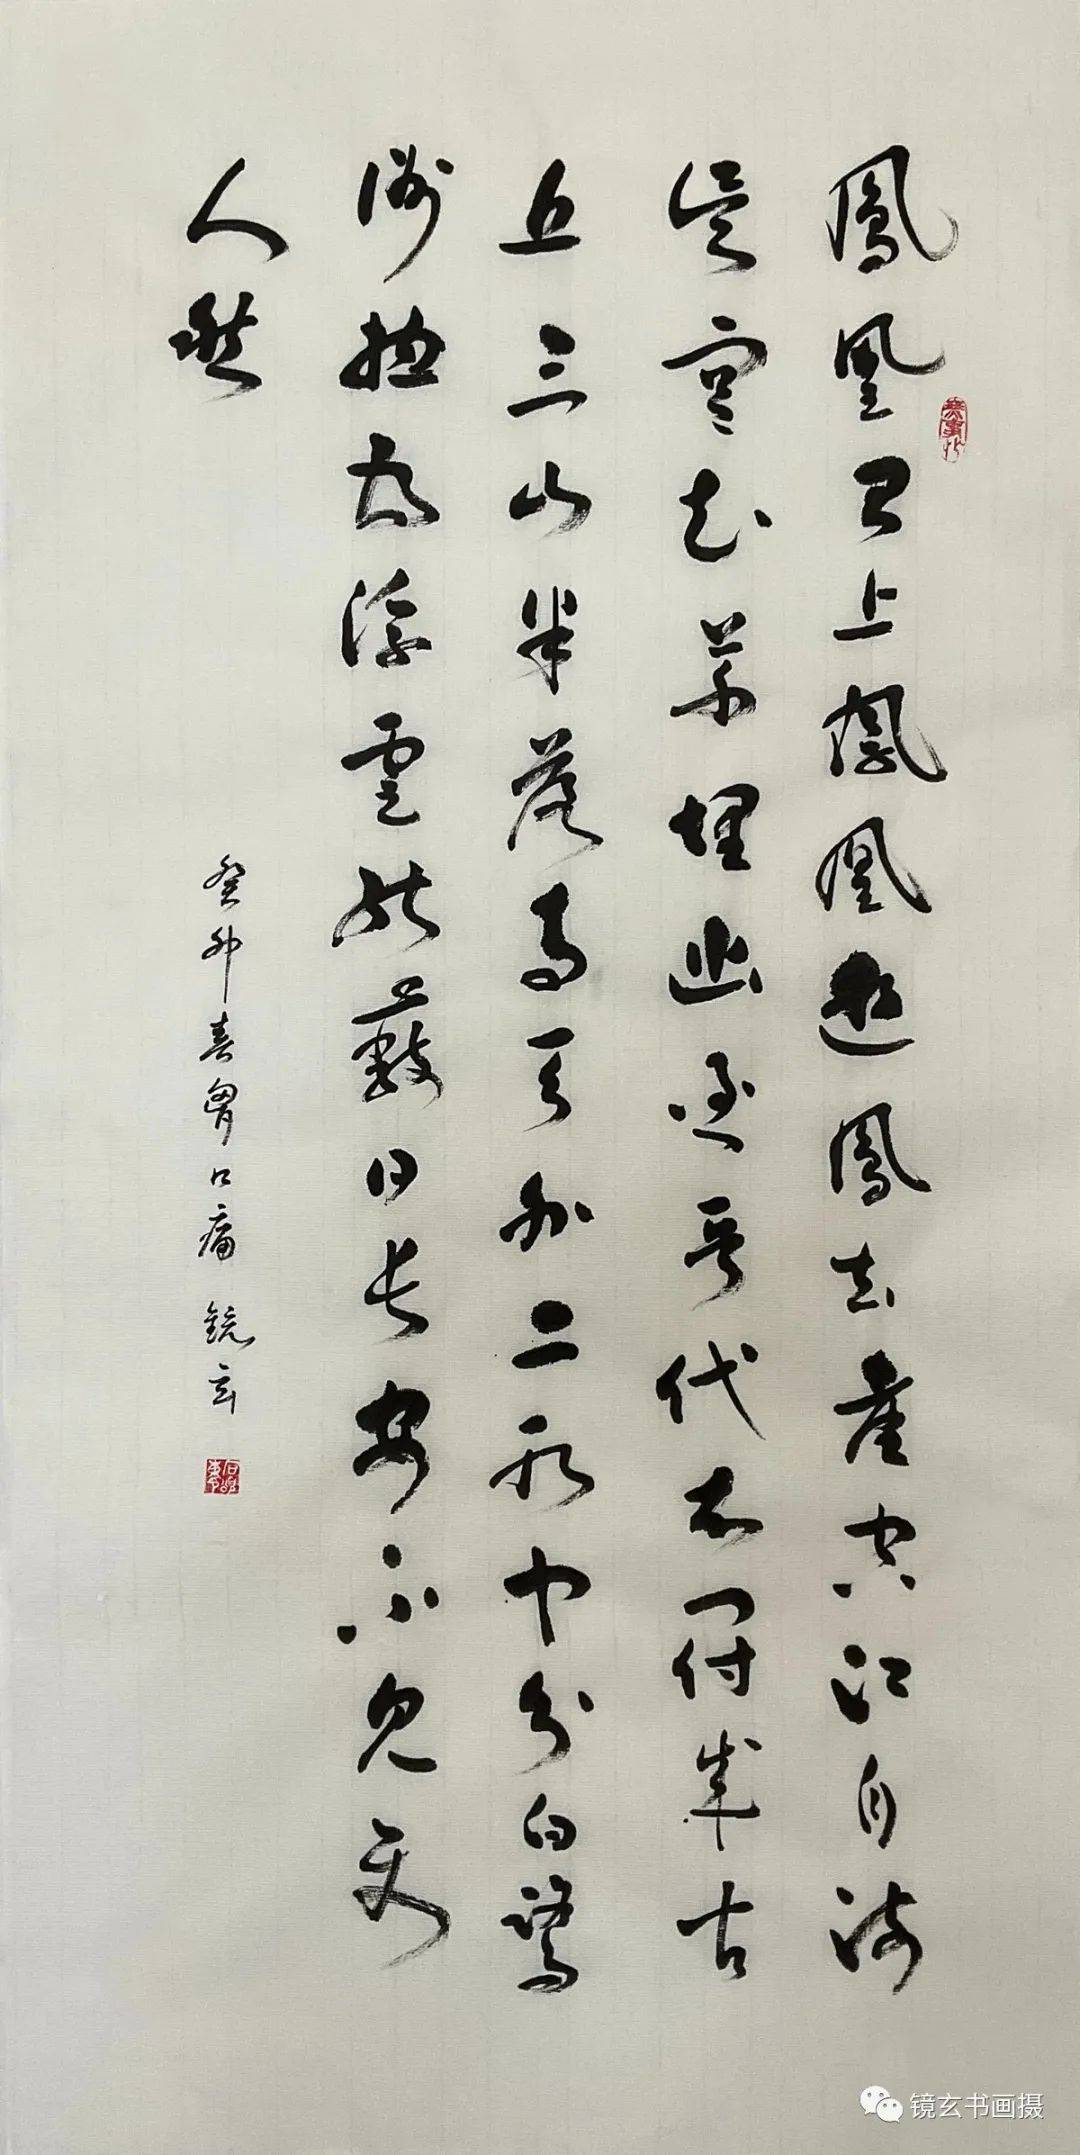 鳳凰台上鳳凰遊鳳去臺空江自流
吴宫花草埋幽迳晋代衣冠成古
丘三山半落青天外二水中分白鷺
洲總為浮雲能蔽日長安不見使
人愁
癸卯春口痛 鏡玄
镜玄书画摄